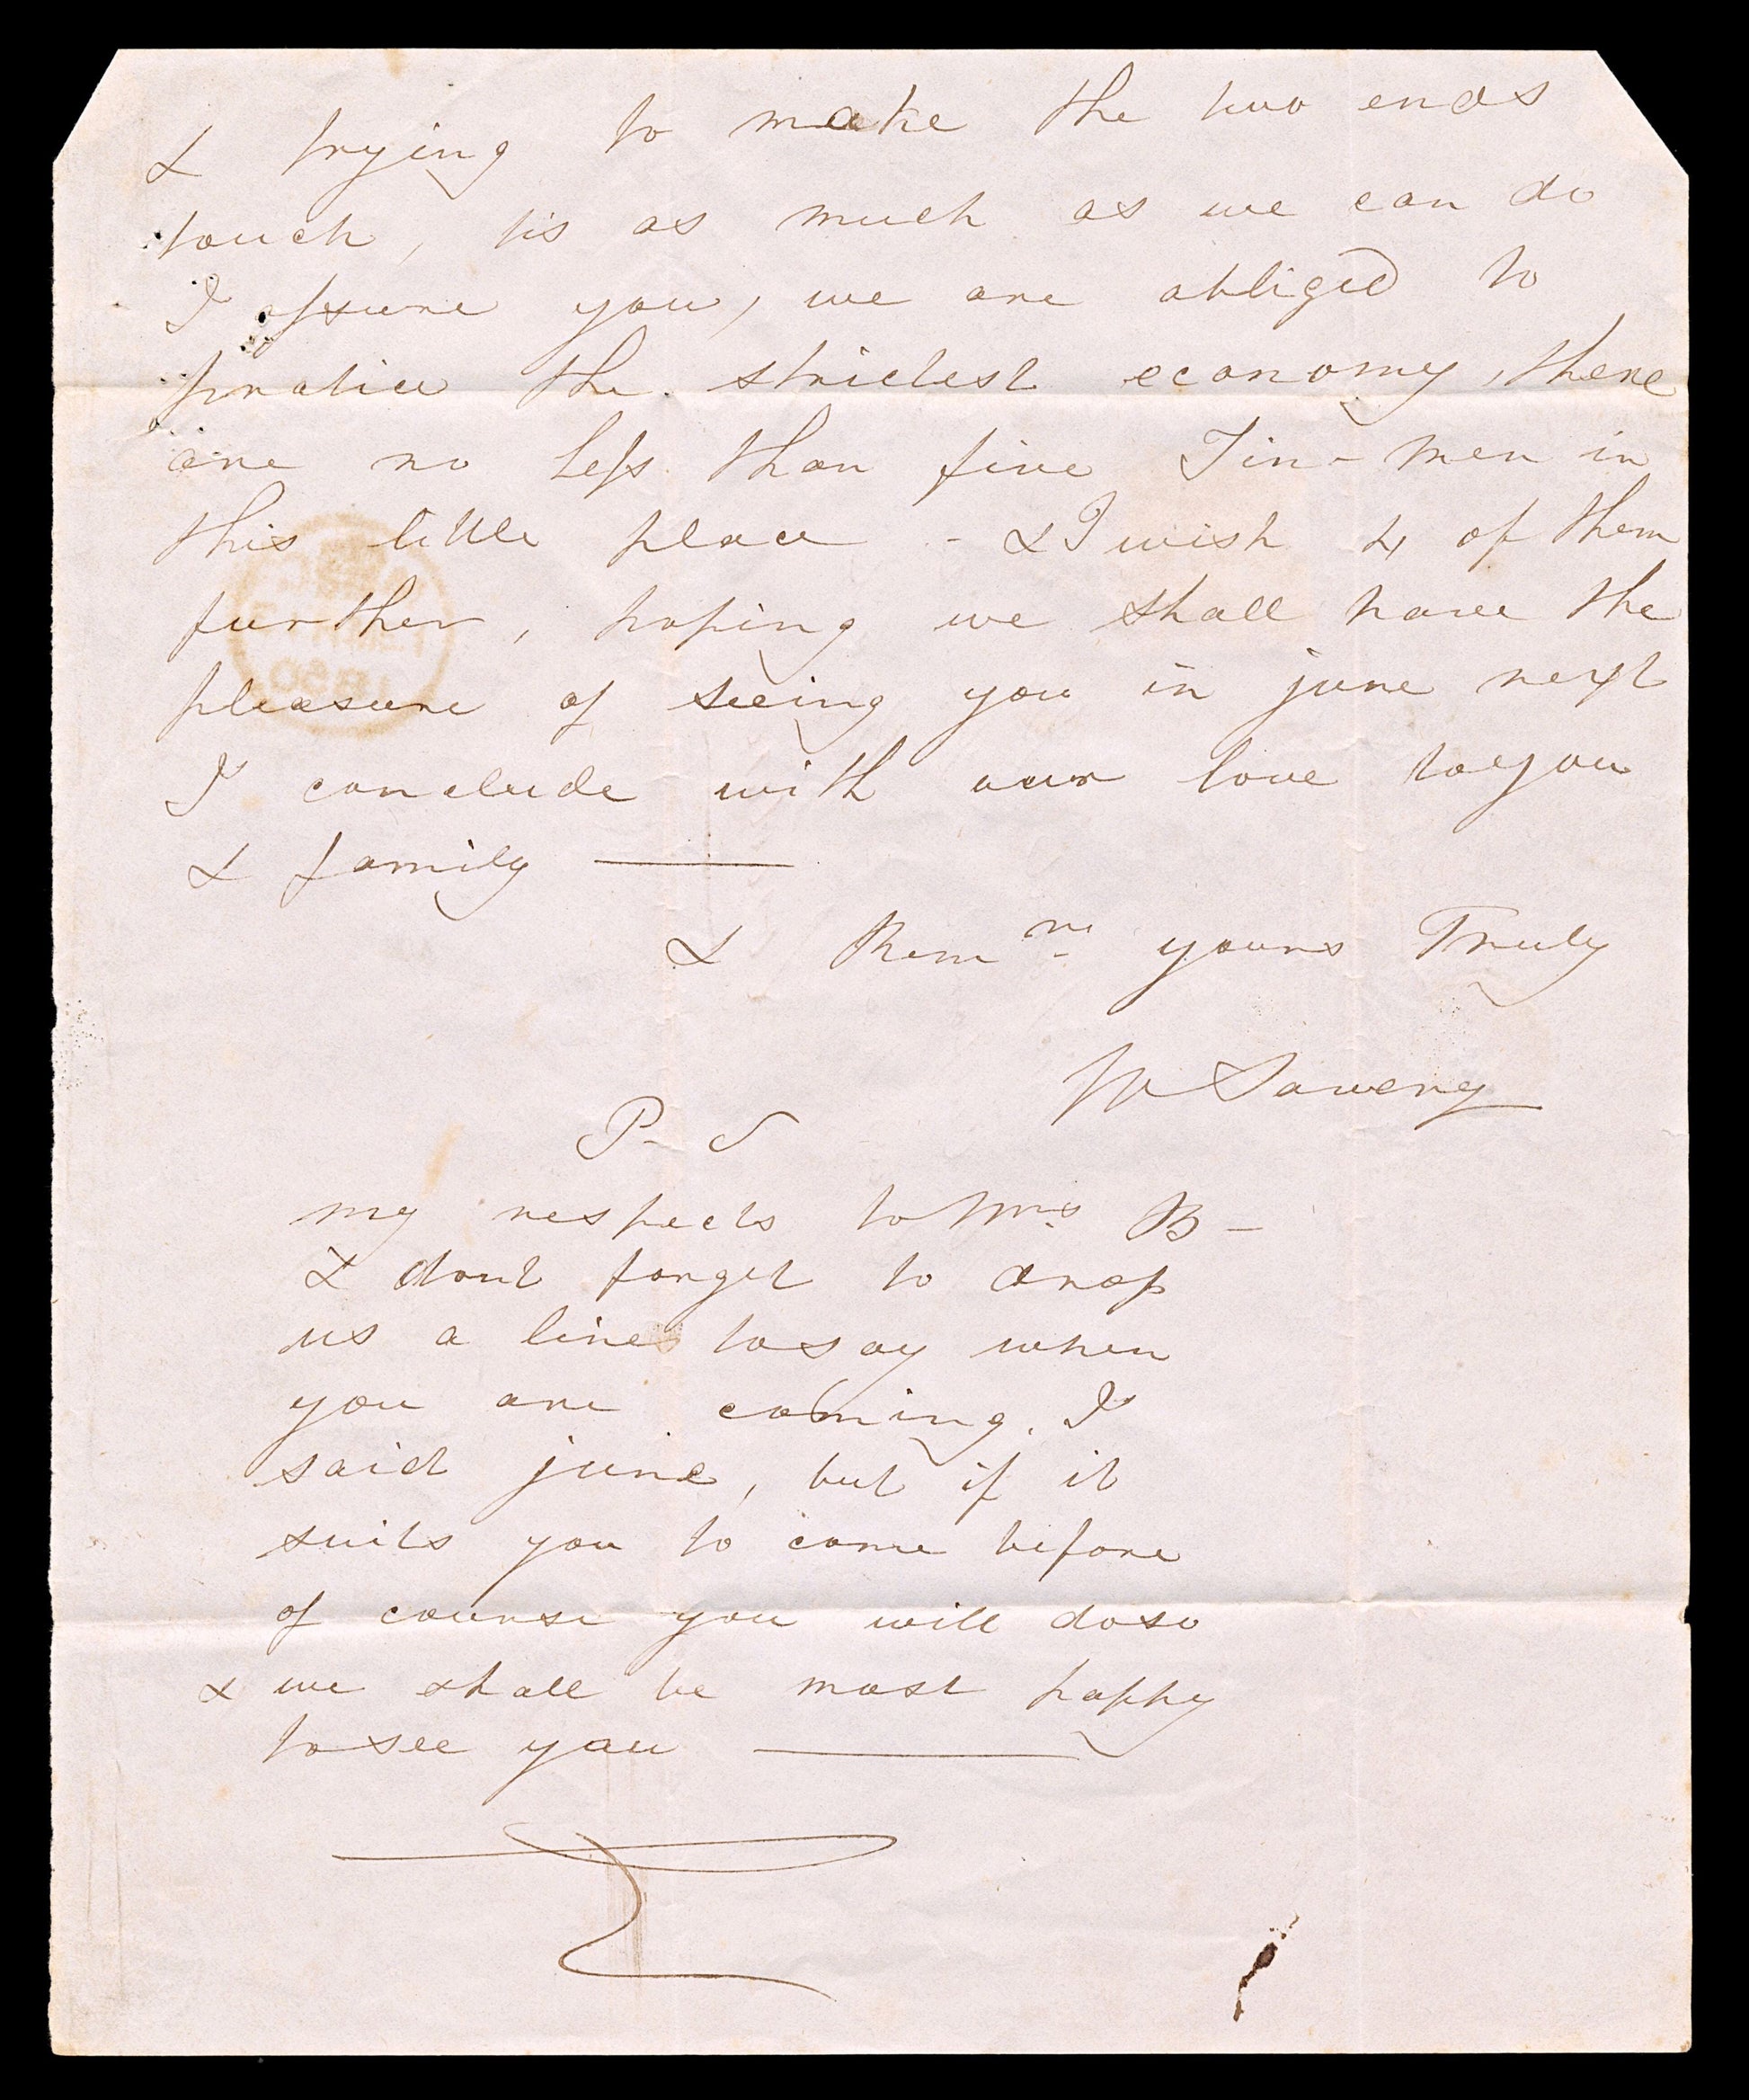 & trying to make the two ends
touch, tis as much as we can do
I assure you, we are obliged to
pratice the strictest economy, there
are no less than five Tin-men in
this little place - & I wish 4 of them
further, hoping we shall have the
pleasure of seeing you in june next
I conclude with our love to you
& family
& Remn yours Truly
W Sawery
P-S
my respects to Mrs B-
& dont forget to drop
us a line to say when
you are coming. I
said june, but if it
suits you to come before
of course you will do so
& we shall be most happy
to see you
1850